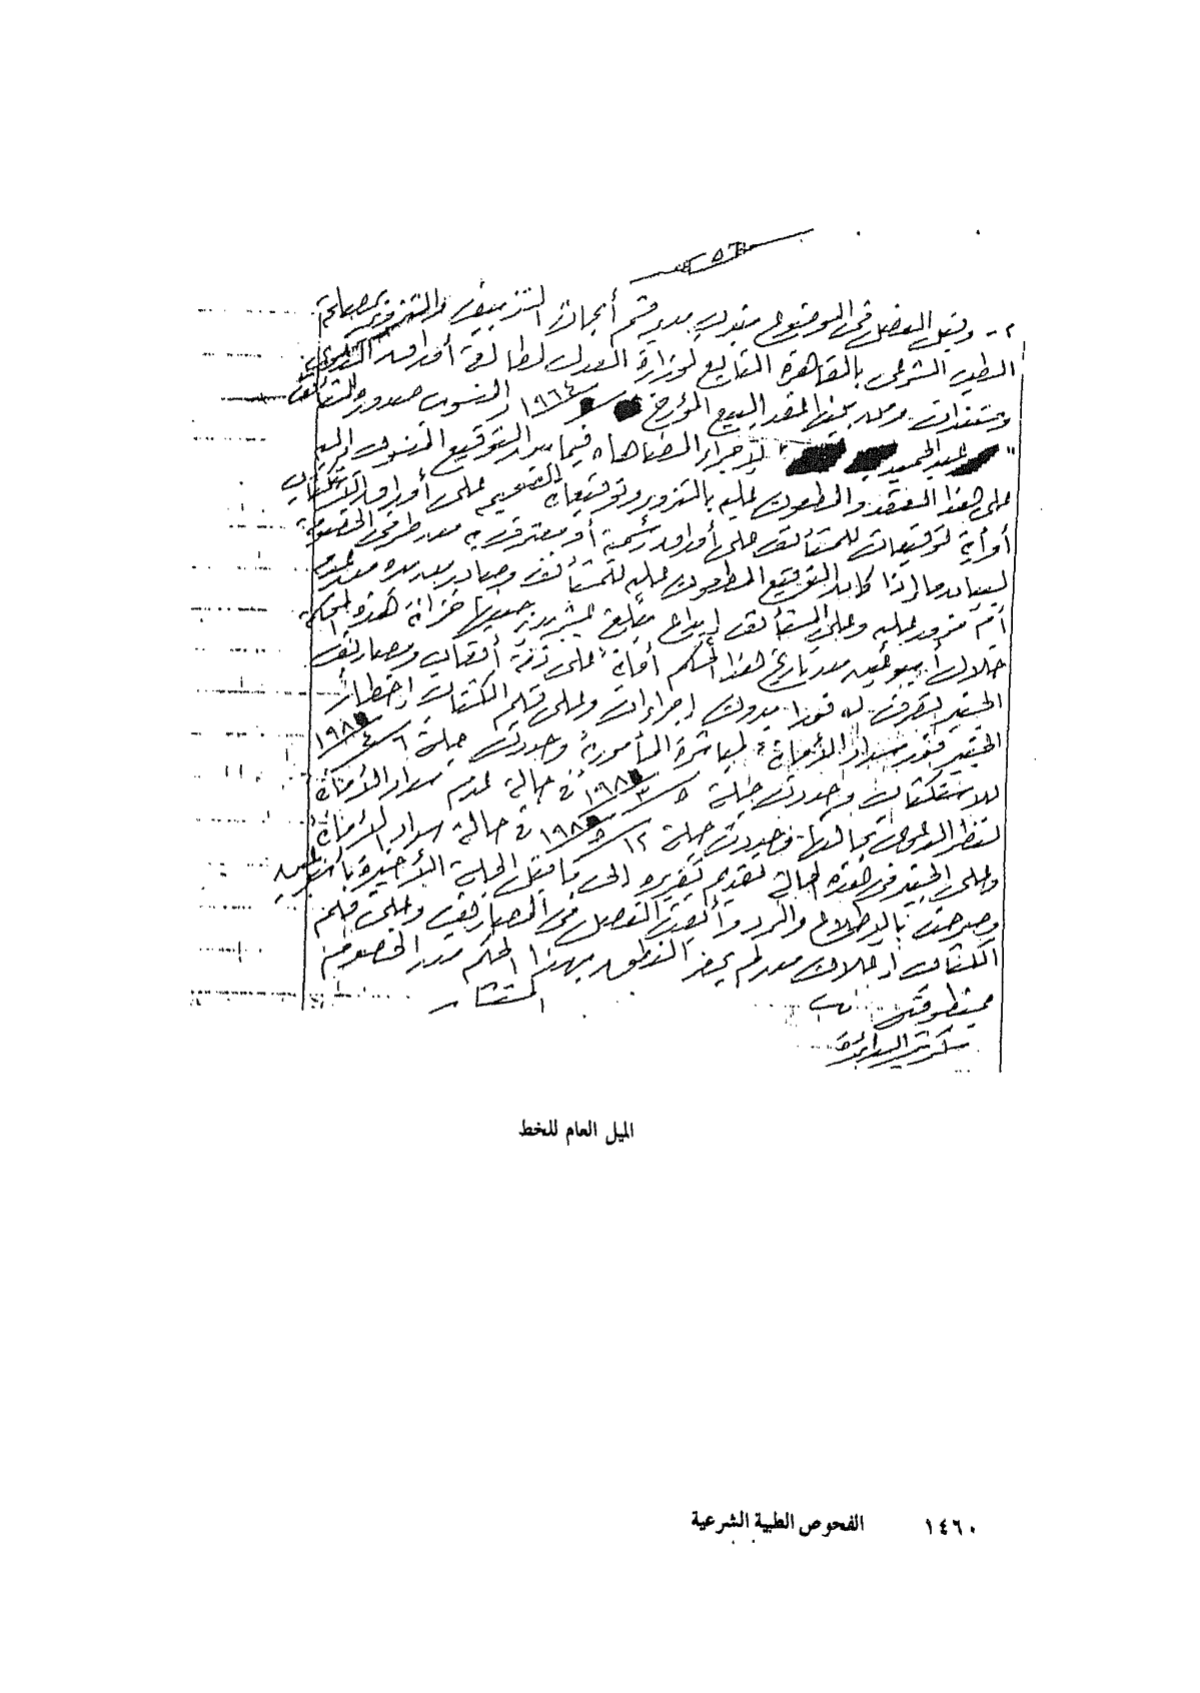 ٢- وقبل الفصل في الموضوع بندب مدير قسم أبحاث التزييف والتزوير بمصلحة
الطب الشرعي بالقاهرة التابع لوزارة العدل لمطالعة أوراق الدعوى
ومستنداتها ومن بينها عقد البيع المؤرخ ١٩٦٤ المنسوب صدوره للمستأنف
" عبد الحميد " لإجراء المضاهاة فيما بين التوقيع المنسوب إليه
على هذا العقد والمطعون عليه بالتزوير وتوقيعاته الصحيحة على أوراق الاستكتاب
أو أية توقيعات للمستأنف على أوراق رسمية أو معترف به من طرفي الخصومة
لبيان ما إذا كان التوقيع المطعون عليه للمستأنف وصادر من يده من عدمه
أم مزور عليه وعلى المستأنف إيداع مبلغ عشرين جنيها خزانة هذه المحكمة
خلال أسبوعين من تاريخ هذا الحكم أمانة على ذمة أتعاب ومصاريف
الخبير تصرف له فورا بدون إجراءات وعلى قلم الكتاب إخطار
الخبير فور سداد الأمانة لمباشرة المأمورية وحددت جلسة ٦/٤/١٩٨
للاستكتاب وحددت جلسة ٥/٣/١٩٨ في حالة عدم سداد الأمانة
لنظر الدعوى بحالتها وحددت جلسة ١٢/٥/١٩٨ في حالة سداد الأمانة
وعلى الخبير في هذه الحالة تقديم تقريره إلى ما قبل الجلسة الأخيرة بأسبوعين
وصرحت بالاطلاع والرد وأبقت الفصل في المصاريف وعلى قلم
الكتاب إعلان من لم يحضر النطق بهذا الحكم من الخصوم
بمنطوقه المستشار
سكرتير الدائرة
الميل العام للخط
١٤٦٠ الفحوص الطبية الشرعية